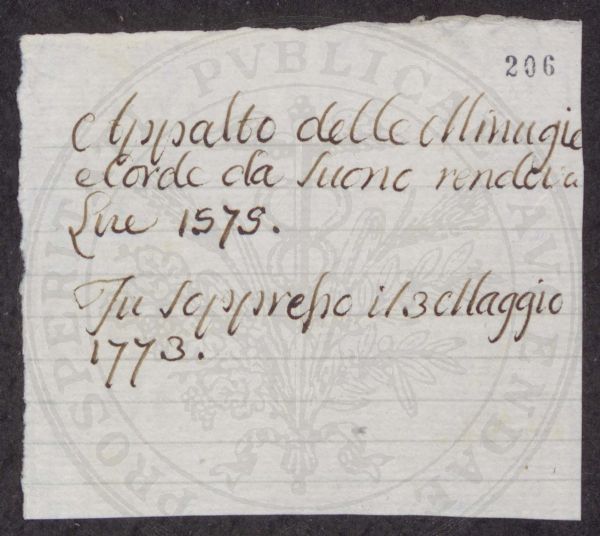 206
Appalto delle Minugie
e Corde da Suono rendeva
Lire 1575.
Fu soppresso il 3 Maggio
1773.